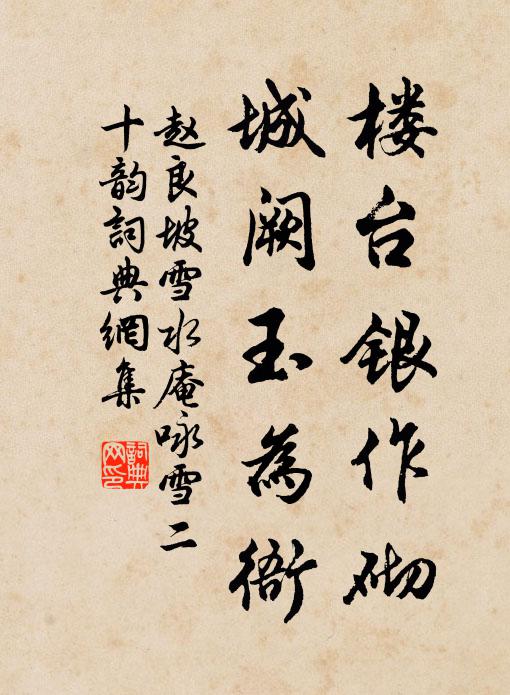 楼台银作砌
城阙玉为衙
赵良坡雪水庵咏雪二
十韵詞典網集
詞典
网印